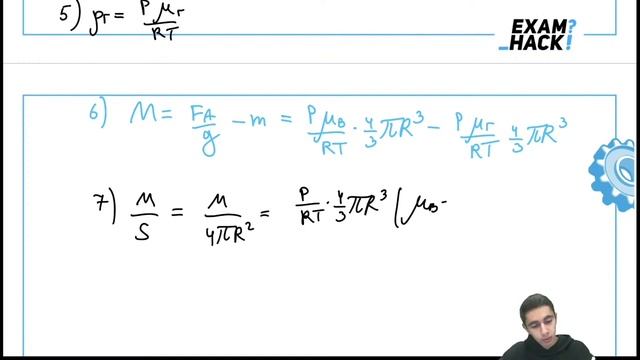 5) ρг = Pμг/RT
EXAM?
_HACK!
6) M = FA/g - m = Pμв/RT · 4/3 πR³ - Pμг/RT 4/3 πR³
7) M/S = M/4πR² = P/RT · 4/3 πR³ (μв -